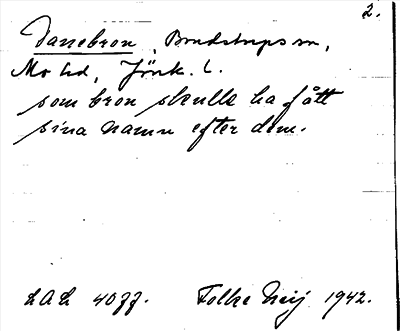 2.
Danebron, Bondstorps sn,
Mo hd, Jönk. l.
som bron skulle ha fått
sina namn efter dem.
LAL 4077. Folke Meij 1942.